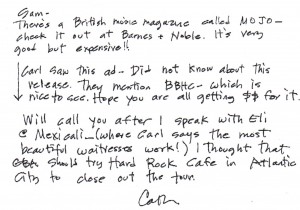 Sam-
There's a British music magazine called MOJO-
check it out at Barnes + Noble. It's very
good but expensive!!
Carl saw this ad- Did not know about this
release. They mention BBHC- which is
nice to see. Hope you are all getting $$ for it.
Will call you after I speak with Eli
@ Mexicali- (where Carl says the most
beautiful waitresses work!) I thought that
should try Hard Rock Cafe in Atlantic
City to close out the tour.